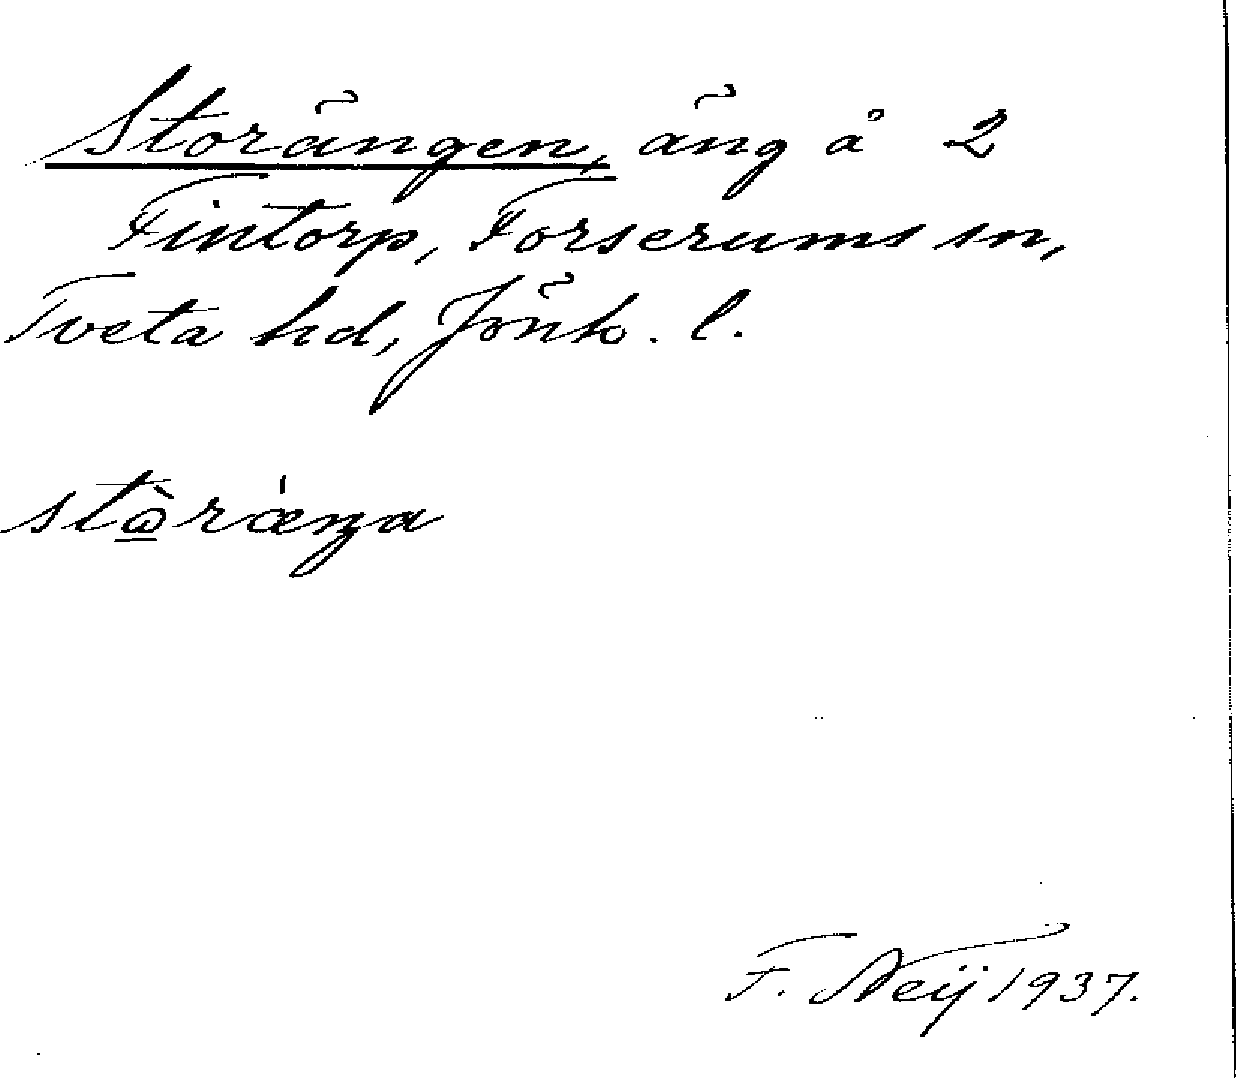 Storängen, äng å 2
Fintorp, Forserums sn,
Tveta hd, Jönk. l.
stὼ̲rǽŋa
F. Neij 1937.